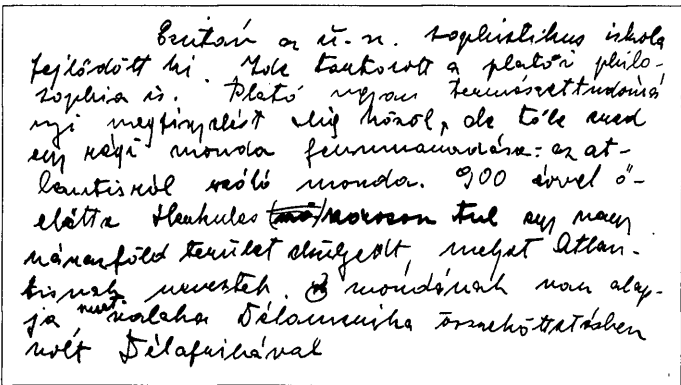 Ezután az u. n. sophistikus iskola
fejlődött ki. Ide tartozott a platói philo-
sophia is. Plató ugyan természettudomá
nyi megfigyelést alig közöl, de tőle ered
egy régi monda fennmaradása: az at-
lantisról szóló monda. 900 évvel ő-
előtte Herkules szoroson tul egy nagy
szárazföld terület sülyedt, melyet Atlan-
tisnak neveztek. A mondának van alap-
ja mert valaha Délamerika összeköttetésben
volt Délafrikával